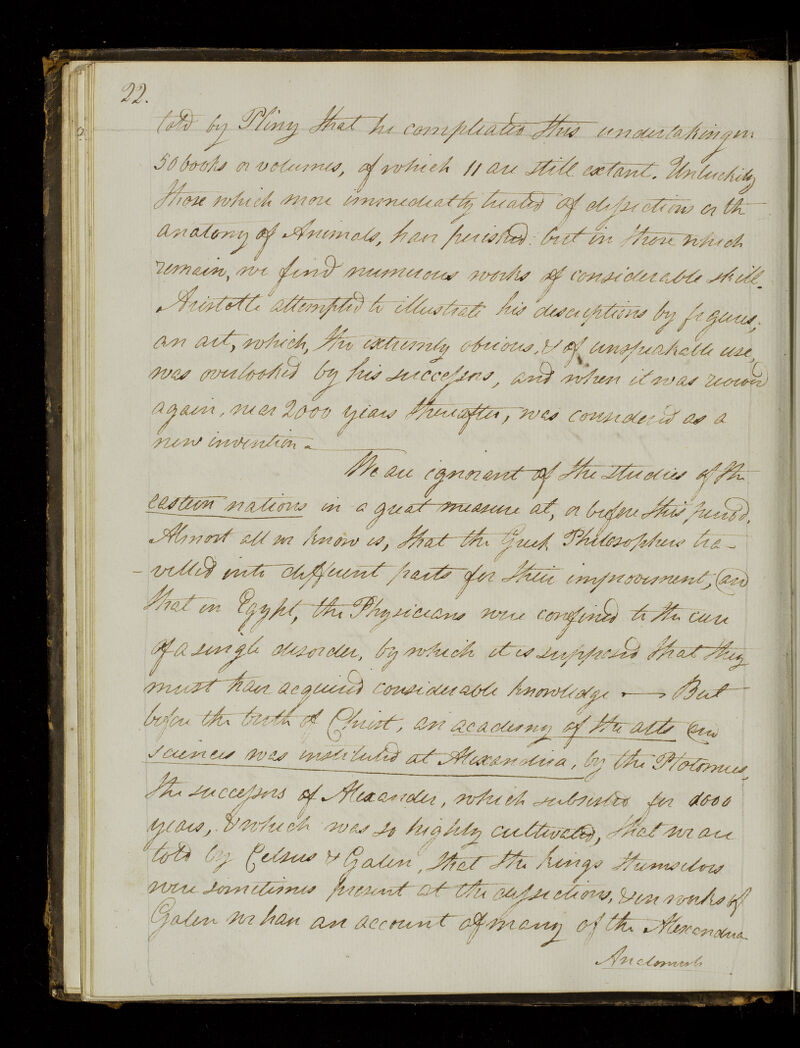 22.
told by Pliny that he compleated this undertaking in
50 books or volumes, of which 11 are still extant. Unluckily
those which more immediately treated of dissections or the
anatomy of Animals, have perished: but in those which
remain, we find numerous works of considerable skill.
Aristotle attempted to illustrate his descriptions by figures;
an art, which, tho extremely obvious, & of unspeakable use,
was overlooked by his successors, and when it was revived
again, near 2000 years thereafter, was considered as a
new invention.
We are ignorant of the studies of the
eastern nations in a great measure at, or before this period.
Almost all we know is, that the Greek Philosophers tra-
velled into different parts for their improvement, and
that in Egypt, the Physicians were confined to the cure
of a single disorder, by which it is supposed that they
must have acquired considerable knowledge. — But
before the birth of Christ, an academy of the arts and
sciences was instituted at Alexandria, by the Ptolomies,
the successors of Alexander, which subsisted for 1000
years, & which was so highly cultivated, that we are
told by Celsus & Galen, that the kings themselves
were sometimes present at the dissections, & in works of
Galen we have an account of many of the Alexandria
Anatomists